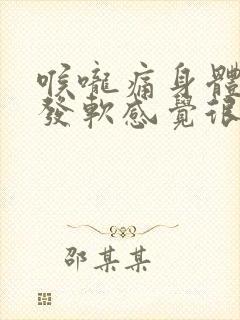 喉嚨痛身體
發軟感覺很
邵某某